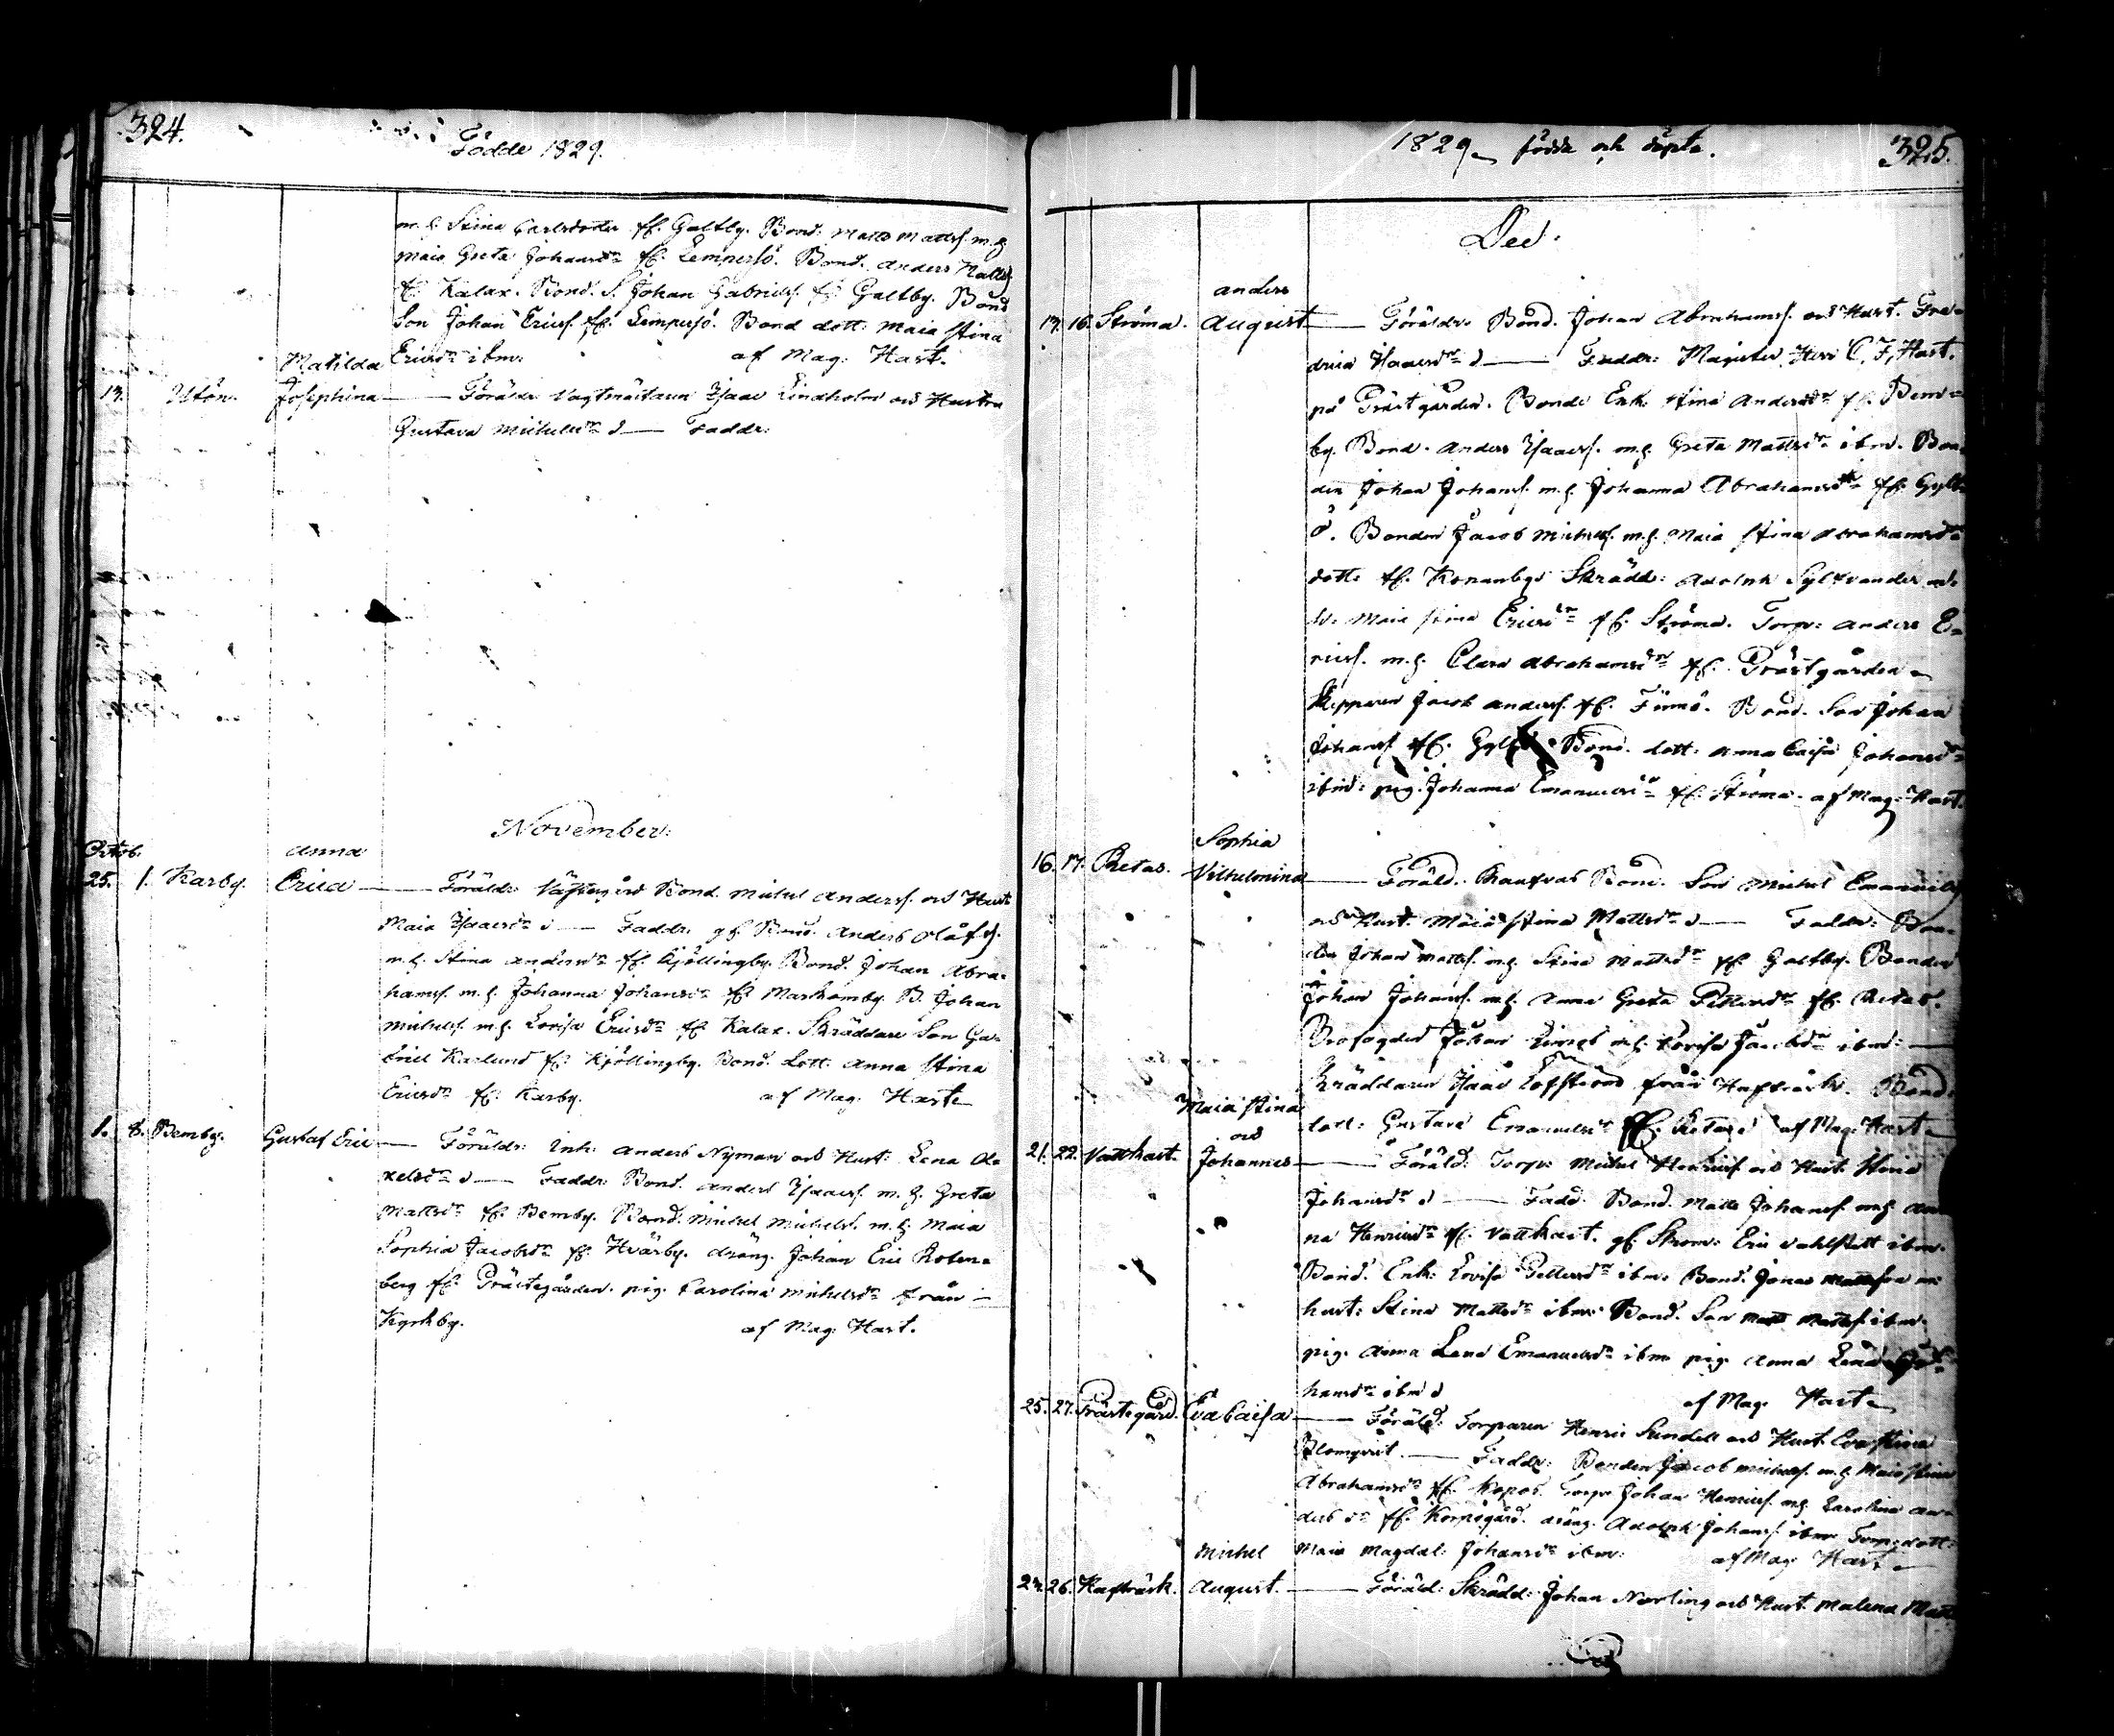 324.
Födde 1829.
m. h. Stina Carlsdotter fr. Galtby. Bond. Matts Mattss. m. h.
Maia Greta Johansdr fr. Lempersö. Bond. Anders Mattss.
fr. Kalax. Bond. S. Johan Gabrielss. fr. Galtby. Bond
Son Johan Ericss. fr. Lempersö. Bond dott: Maia Stina
Ericsdr ibm: af Mag. Hart.
Matilda
13. Utön. Josephina — Föräldr. Vagtmästaren Isaac Lindholm och Hustru
Gustava Michelsdr — Faddr:
November:
Octob. Anna
25. 1. Karby. Erica — Föräldr. Bond. Michel Anderss. och Hust
Maia Isaacsdr — Faddr. gf. Bond. Anders Olofss.
m. h. Stina Andersdr fr. Kjöllingby. Bond. Johan Abra-
hamss. m. h. Johanna Johansdr fr. Markomby. B. Johan
Michelss. m. h. Lovisa Ericsdr fr. Kalax. Skräddare Son Ga-
briel Karlund fr. Kjöllingby. Bond. Dott. Anna Stina
Ericsdr fr. Karby. af Mag. Hart
1. 8. Bemby. Gustaf Eric — Föräldr: Inh: Anders Nyman och Hust: Lena Ax-
elsdr — Faddr: Bond. Anders Isaacss. m. h. Greta
Mattsdr fr. Bemby. Bond. Michel Michelss. m. h. Maia
Sophia Jacobsdr fr. Hvärby. dräng. Johan Eric Rosen-
berg fr. Prästegården. pig. Carolina Michelsdr från
Kyrkby. af Mag. Hart.
1829 födda och döpta. 325.
Dec.
Anders
13. 16. Ströma. August — Föräldr. Bond. Johan Abrahamss. och Hust. Fre-
drica Isaacsdr — Faddr: Magister Herr C. F. Hart.
på Prästgården. Bonde Enk: Stina Andersdr fr. Bem-
by. Bond. Anders Isaacss. m. h. Greta Mattsdr ibm. Bon-
den Johan Johanss. m. h. Johanna Abrahamsdr fr. Gylt-
ö. Bonden Jacob Michelss. m. h. Maia Stina Abrahamsdr
dott: fr. Korsnby. Skrädd: Adolph Sylvander m.
h. Maia Stina Ericsdr fr. Ströma. Torp: Anders E-
ricss. m. h. Clara Abrahamsdr fr. Prästgården
Skepparen Jacob Anderss. fr. Finnö. Bond. Son Johan
Johanss. fr. Bond. dott: Anna Caisa Johansdr
ibm: pig. Johanna Emanuelsdr fr. Ströma. af Mag. Hart.
Sophia
16. 17. Retas. Vilhelmina — Föräld. Bond. Son Michel Emanuelss
och Hust. Maia Stina Mattsdr — Faddr: Bon-
den Johan Mattss. m. h. Stina Mattsdr fr. Galtby. Bonden
Johan Johanss. m. h. Anna Greta Pettersdr fr. Retas.
Brofogden Johan m. h. Lovisa Jacobsdr ibm:
Skräddaren Isaac Löfström från Hafträsk. Bond.
dott: Gustava Emanuelsdr fr. Retas af Mag. Hart
Maia Stina
och
21. 22. Vattkast. Johannes — Föräld. Torp: Michel Henricss och Hust. Stina
Johansdr — Fadd. Bond. Matts Johanss. m. h. An-
na Henricsdr fr. Vattkast. gf. Skom: Eric Vahlstett ibm.
Bond. Enk: Lovisa Pettersdr ibm: Bond. Jonas Mattsson m:
hust: Stina Mattsdr ibm: Bond. Son Matts Mattss. ibm.
pig. Anna Lena Emanuelsdr ibm pig. Anna Lena Jo-
hansdr ibm af Mag. Hart
25. 27. Prästegård. Eva Caisa — Föräld: Torparen Henric Sundell och Hust. Eva Stina
Blomqvist. — Faddr: Bonden Jacob Michelss. m. h. Maia Stina
Abrahamsdr fr. Kopos. Torp. Johan Henricss. m. h. Carolina An-
dersdr fr. Korpogård. dräng. Adolph Johanss. ibm Torp. dott:
Maia Magdal: Johansdr ibm: af Mag. Hart
Michel
24. 26. Hafträsk. August. — Föräld: Skrädd: Johan Norling och Hust. Malena Matts